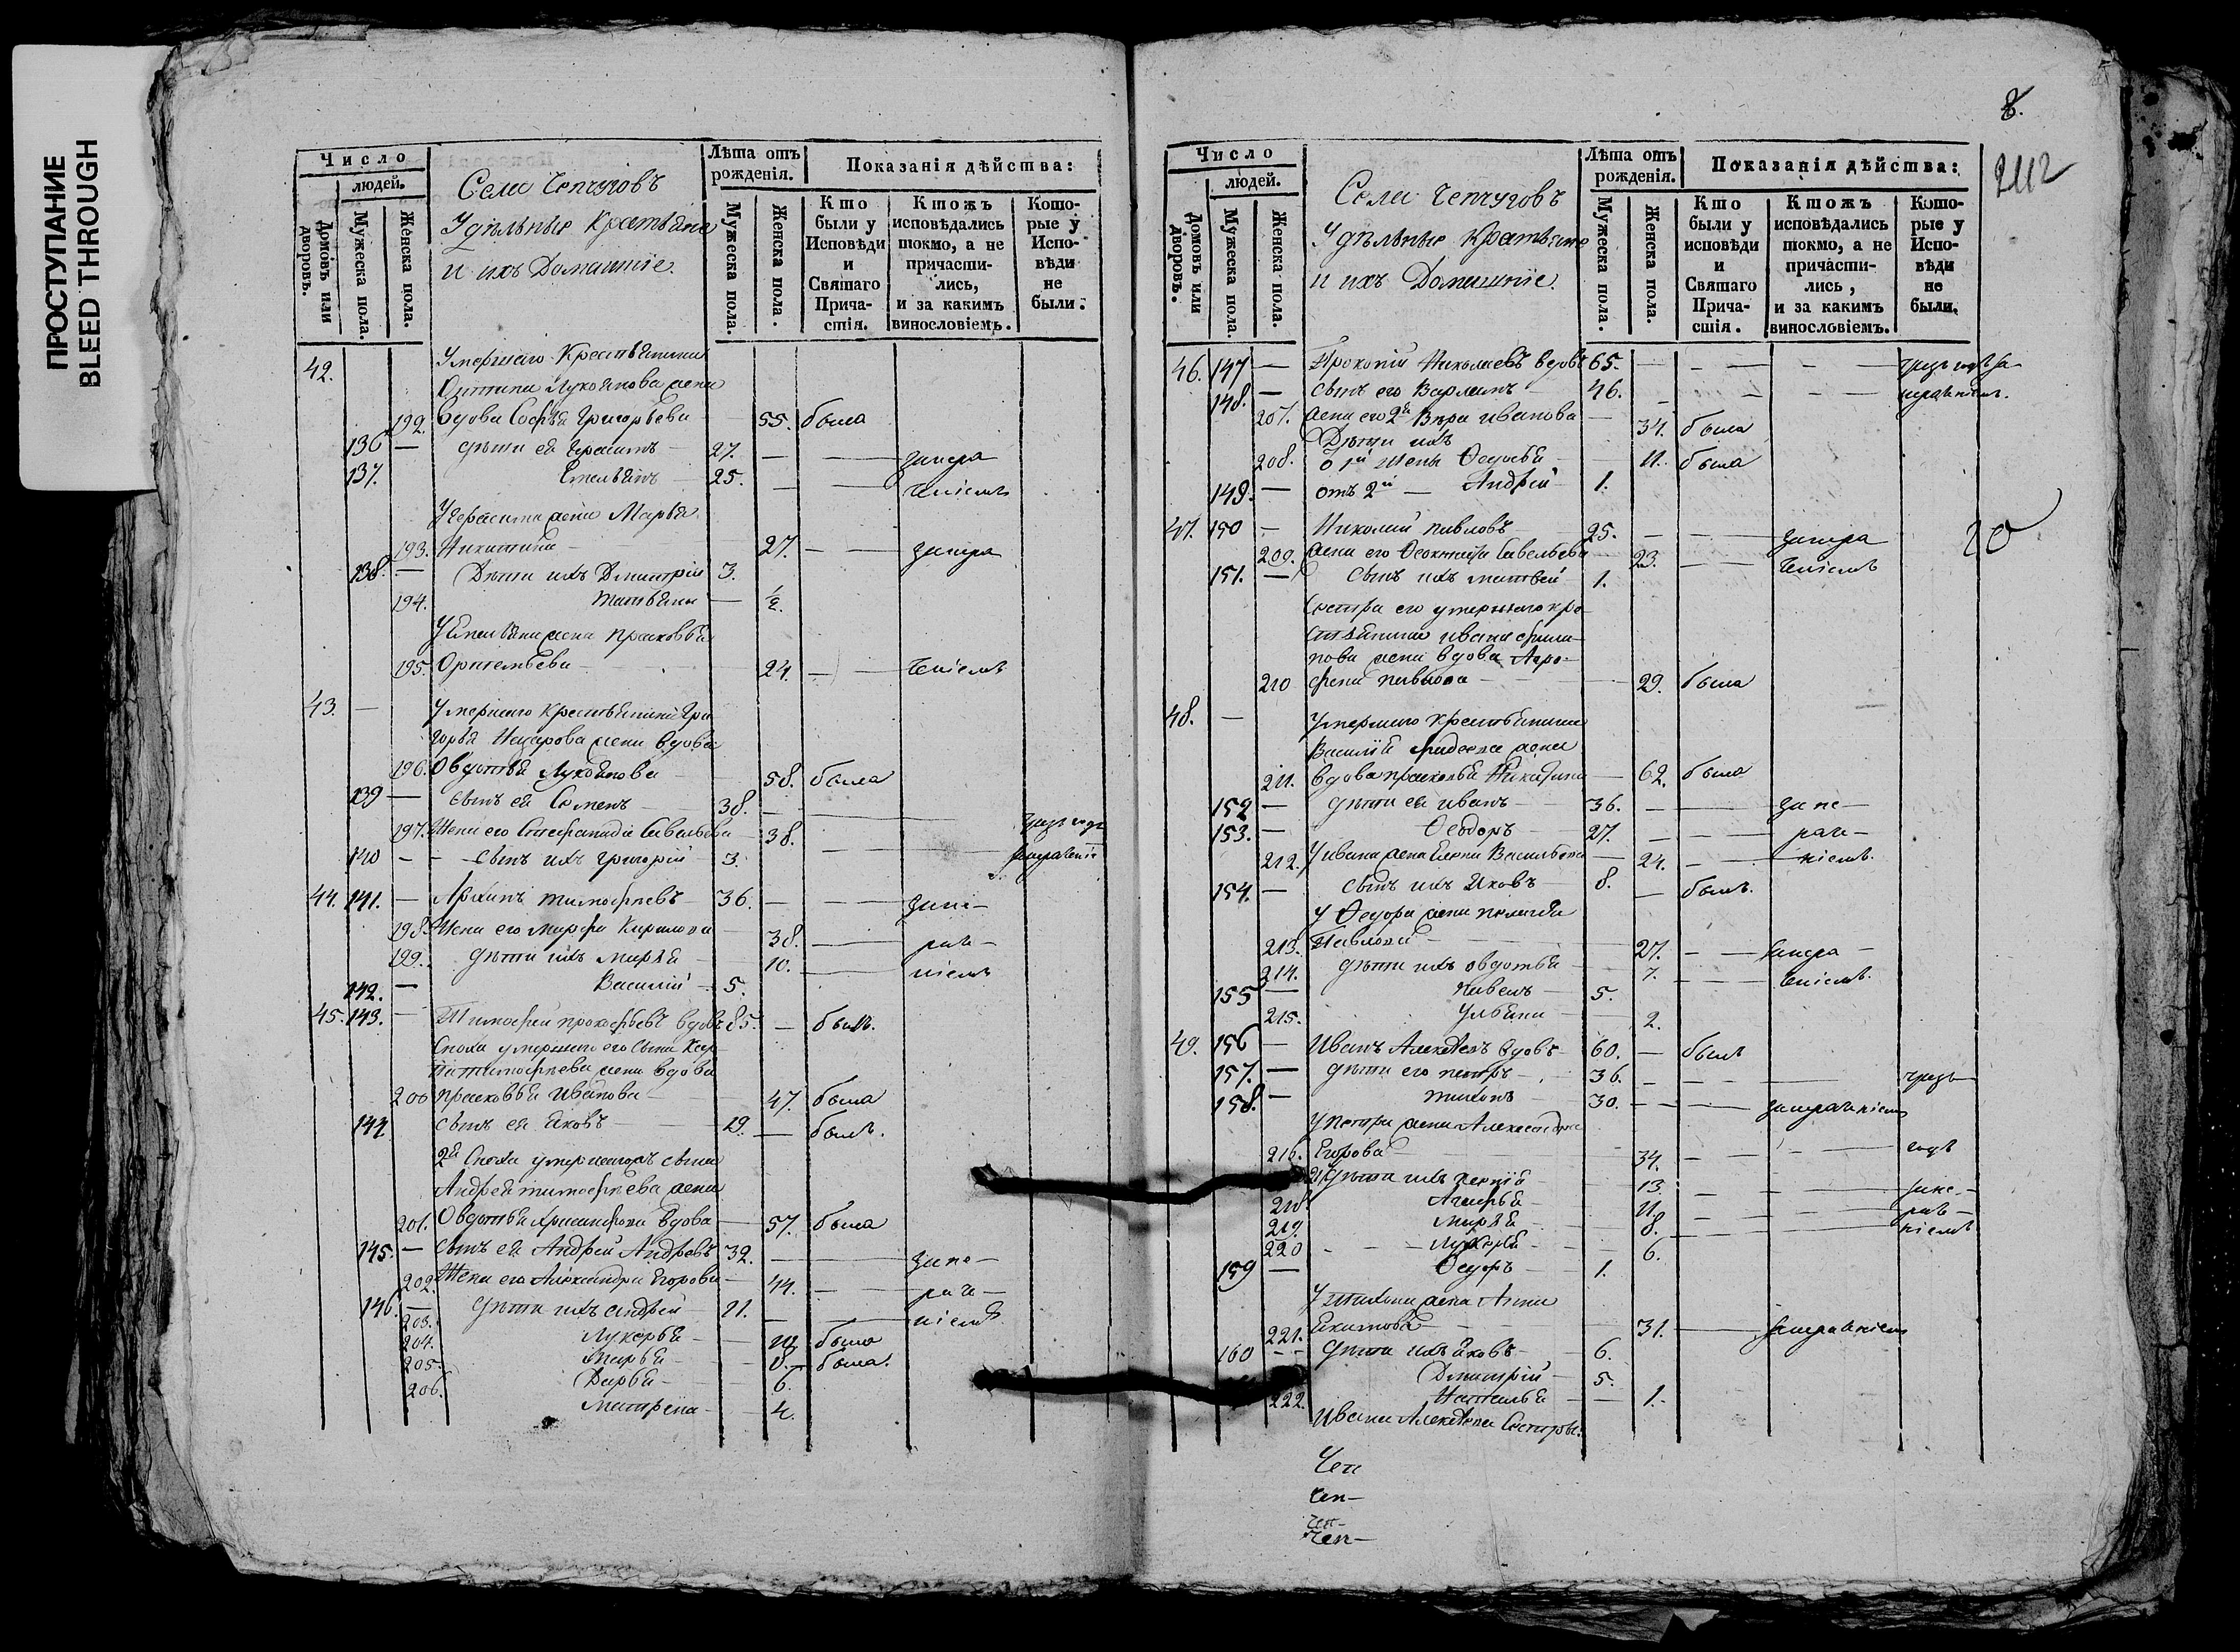 ПРОСТУПАНИЕ
BLEED THROUGH
Число
людей.
Домовъ или дворовъ.
Мужеска пола.
Женска пола.
Села Чепчуговъ
Удѣльные Крестьяне
и ихъ Домашніе.
Лѣта отъ рожденія.
Мужеска пола.
Женска пола.
Показанія дѣйства:
Кто были у Исповѣди и Святаго Причастія.
Ктожъ исповѣдались токмо, а не причастились, и за какимъ винословіемъ.
Которые у Исповѣди не были.
42. Умершаго Крестьянина
Лукоянова жена
192. Вдова Софья Григорьева 55. была
136 — дѣти ея Герасимъ 27. — — занера
137. Емельянъ 25. — — ченіемъ
У Герасима жена Марья
193. Никитина 27. — — занера
138. — Дѣти ихъ Димитрій 3.
194. Татьяна — ½.
У Емельяна жена Прасковья
195. 24. — — ченіемъ
43. — Умершаго Крестьянина Гри
горья Назарова жена вдова
196. Овдотья Лукоянова 58. была
139 — сынъ ея Семенъ 38. —
197. Жена его Степанида Савельева 38. чрезъ годъ
140 — сынъ ихъ Григорій 3.
44. 141. — Архипъ Тимофѣевъ 36. — — зане-
198. Жена его Марфа Кирилова 38. — раче-
199. дѣти ихъ Марья 10. — ніемъ
142. — Василій 5.
45. 143. — Тимофей Прокофьевъ вдовъ 85. — былъ.
Сноха умершаго его сына Кар
па Тимофѣева жена вдова
200 Прасковья Иванова 47. была
144 сынъ ея Яковъ 19. — былъ.
2я Сноха умершаго сына
Андрея Тимофѣева жена
201. Овдотья вдова 57. была
145. — сынъ ея Андрей Андреевъ 32. — зане-
202. Жена его Александра Егорова 44. — раче-
146. — дѣти ихъ Андрей 21. — ніемъ
203. Лукерья была
204. Марья 8. была.
205. Дарья 6.
206. Матрена 4.
8.
2112
Число
людей.
Домовъ или дворовъ.
Мужеска пола.
Женска пола.
Села Чепчуговъ
Удѣльные Крестьяне
и ихъ Домашніе.
Лѣта отъ рожденія.
Мужеска пола.
Женска пола.
Показанія дѣйства:
Кто были у исповѣди и Святаго Причастія.
Ктожъ исповѣдались токмо, а не причастились, и за какимъ винословіемъ.
Которые у Исповѣди не были.
46. 147 — Прокопій Николаевъ вдовъ 65. — — —
148. — сынъ его Варламъ 46. — — —
207. жена его 2я Вѣра Иванова — 34. была
Дѣти ихъ
208. о 1й жены Федосья 11. была
149. — отъ 2й — Андрей 1.
47. 150 — Николай Павловъ 25. — — занера
209. жена его Феоктиста Савельева 23. — — ченіемъ
151. — сынъ ихъ Матвей 1.
20
Сестра его умершаго кре
стьянина Ивана Фили
пова жена вдова Агро-
210 фена Павлова 29. была
48. — Умершаго крестьянина
Василія Фадеева жена
211. вдова Прасковья Никитина — 62. была
152 — дѣти ея Иванъ 36. — — зане-
153. — Феодоръ 27. — — раче-
212. У Ивана жена Елена Васильева 24. — — ніемъ.
154. — сынъ ихъ Яковъ 8. — былъ.
У Федора жена Пелагея
213. Павлова 27. — — занера-
214. дѣти ихъ Овдотья 7. — — ченіемъ.
155 — Павелъ 5.
215. Ульяна 2.
49. 156 — Иванъ Алексѣевъ вдовъ 60. — былъ
157. — дѣти его Петръ 36. — — — чрезъ
158. — Тихонъ 30. — — занераченіемъ
У Петра жена Александра
216. Егорова 34. — — — годъ
217 Дѣти ихъ 13. — — — зане-
218 11. — — — раче-
219. Марья 8. — — — ніемъ
220 Лукерья 6.
159 — Федоръ 1.
У Тихона жена Анна
221. Екимова 31. — занераченіемъ
160 — дѣти ихъ Яковъ 6.
Дмитрій 5.
222. Наталья — 1.
Ивана Алексѣева Сестры.
Чеп
Чеп-
Чеп-
Чеп-